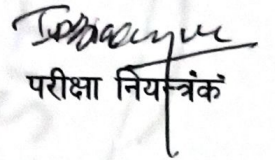 परीक्षा नियन्त्रंक